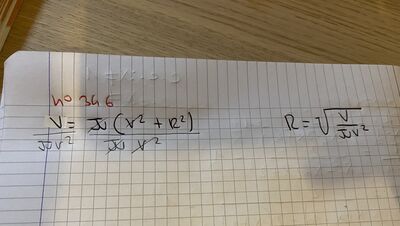 no 346
V/πr² = π(r² + R²)/πr²
R = √(V/πr²)